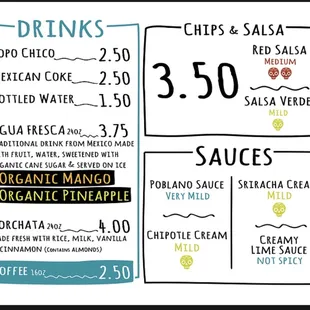 DRINKS
OPO CHICO 2.50
EXICAN COKE 2.50
OTTLED WATER 1.50
GUA FRESCA 24OZ 3.75
ADITIONAL DRINK FROM MEXICO MADE
TH FRUIT, WATER, SWEETENED WITH
GANIC CANE SUGAR & SERVED ON ICE
ORGANIC MANGO
ORGANIC PINEAPPLE
ORCHATA 24OZ 4.00
ADE FRESH WITH RICE, MILK, VANILLA
CINNAMON (CONTAINS ALMONDS)
OFFEE 16OZ 2.50
CHIPS & SALSA
3.50
RED SALSA
MEDIUM
SALSA VERDE
MILD
SAUCES
POBLANO SAUCE
VERY MILD
CHIPOTLE CREAM
MILD
SRIRACHA CREA
MILD
CREAMY
LIME SAUCE
NOT SPICY